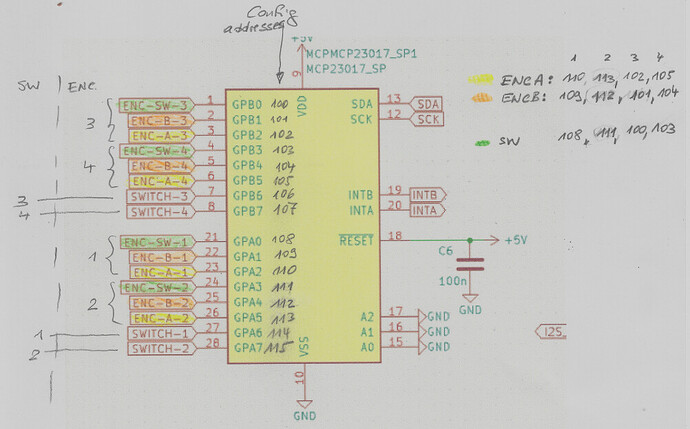 Config
addresses
+5V
MCPMCP23017_SP1
MCP23017_SP
1 2 3 4
ENCA: 110, 113, 102, 105
ENCB: 109, 112, 101, 104
SW 108, 111, 100, 103
SW ENC
9
VDD
3
ENC-SW-3 1 GPB0 100
ENC-B-3 2 GPB1 101
ENC-A-3 3 GPB2 102
4
ENC-SW-4 4 GPB3 103
ENC-B-4 5 GPB4 104
ENC-A-4 6 GPB5 105
3 SWITCH-3 7 GPB6 106
4 SWITCH-4 8 GPB7 107
1
ENC-SW-1 21 GPA0 108
ENC-B-1 22 GPA1 109
ENC-A-1 23 GPA2 110
2
ENC-SW-2 24 GPA3 111
ENC-B-2 25 GPA4 112
ENC-A-2 26 GPA5 113
1 SWITCH-1 27 GPA6 114
2 SWITCH-2 28 GPA7 115
SDA 13 SDA
SCK 12 SCK
INTB 19 INTB
INTA 20 INTA
RESET 18 +5V
C6
100n
GND
A2 17 GND
A1 16 GND
A0 15 GND
I2S
VSS
10
GND